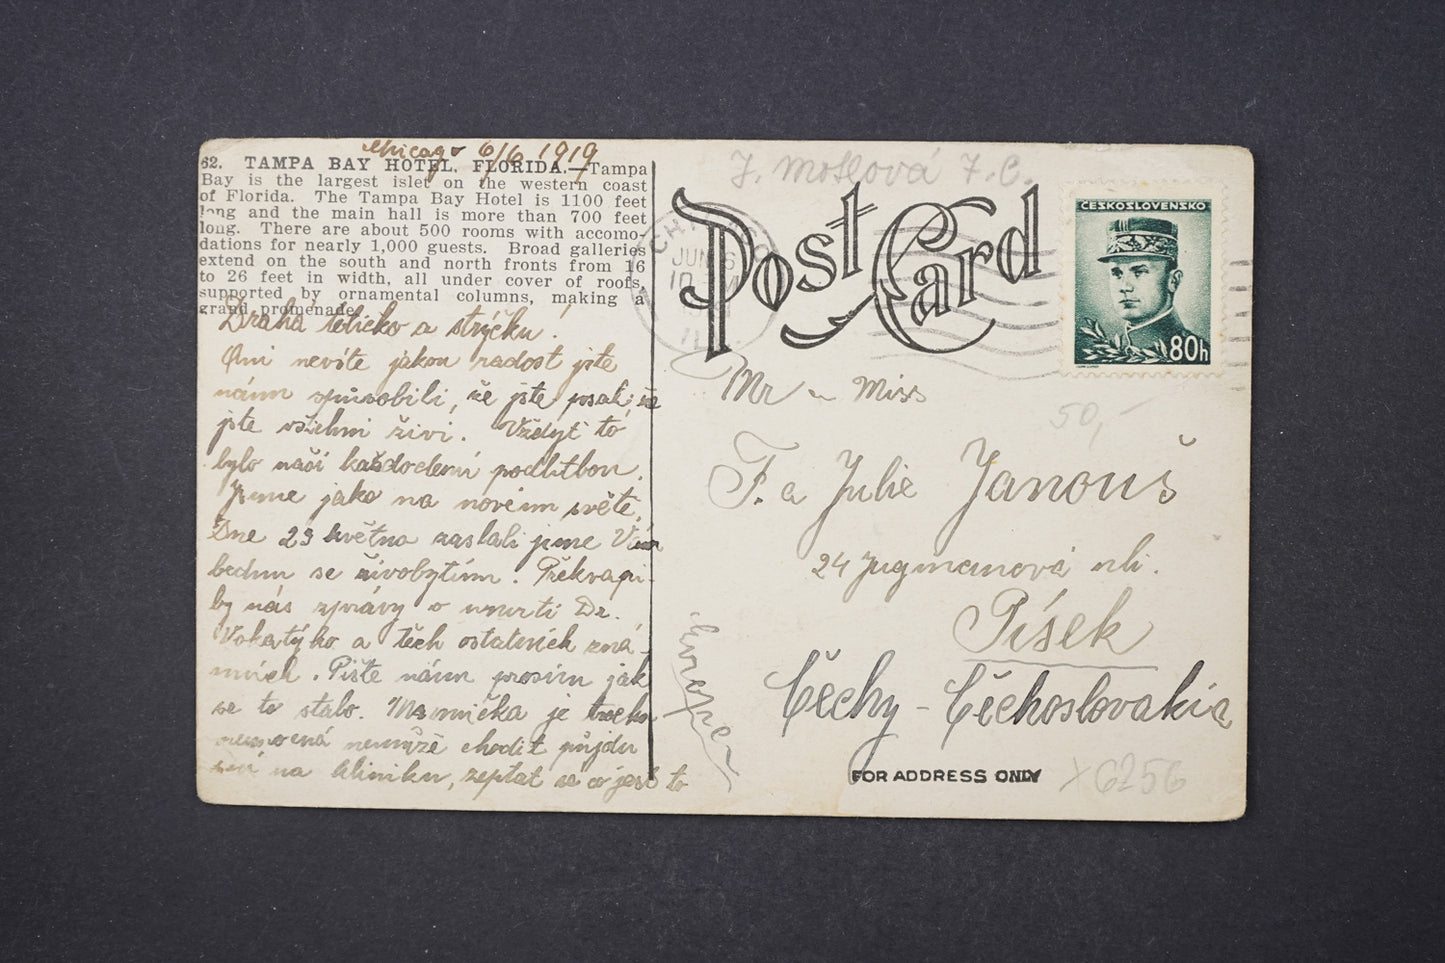 Chicago 6/6 1919
62. TAMPA BAY HOTEL, FLORIDA.—Tampa
Bay is the largest islet on the western coast
of Florida. The Tampa Bay Hotel is 1100 feet
long and the main hall is more than 700 feet
long. There are about 500 rooms with accomo-
dations for nearly 1,000 guests. Broad galleries
extend on the south and north fronts from 16
to 26 feet in width, all under cover of roofs,
supported by ornamental columns, making a
grand promenade.
Drahá tetičko a strýčku!
Ani nevíte jakou radost jste
nám způsobili, že jste psali že
jste všichni živi. Vždyť to
bylo naší každodení modlitbou.
Jsme jako na novém světě.
Dne 23 května zaslali jsme Vám
bednu se živobytím. Překvapi-
ly nás zprávy o úmrtí Dr.
a těch ostatních zná-
mích. Pište nám prosím jak
se to stalo. Maminka je trochu
nemocná nemůže chodit půjdu
s ní na kliniku, zeptat se co jest to
J. Mosлová F. C.
CHICAGO
JUN 6
10
ILL
Post Card
ČESKOSLOVENSKO
80h
50,-
Mr a Miss
F. a Julie Janouš
24 Jugmanová uli.
Písek
Čechy - Čechoslovakia
Europe
FOR ADDRESS ONLY
x 6256